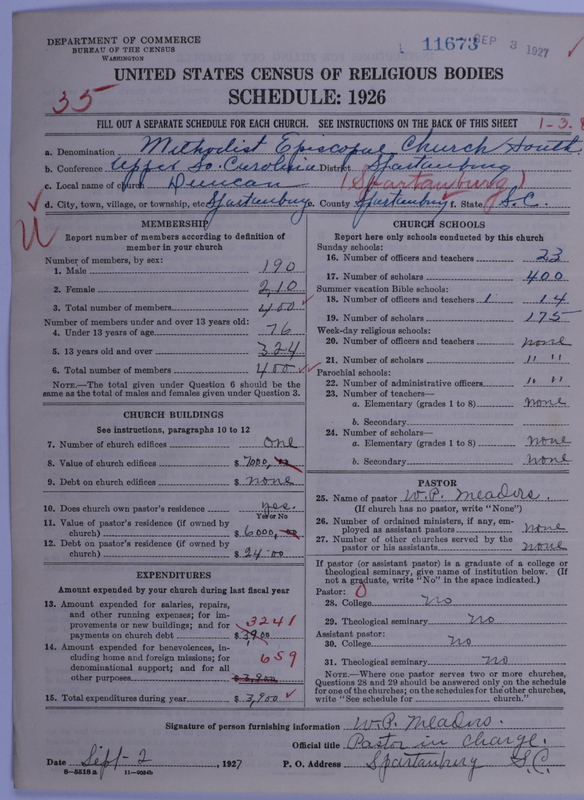 DEPARTMENT OF COMMERCE
BUREAU OF THE CENSUS
WASHINGTON
11673 SEP 3 1927
UNITED STATES CENSUS OF RELIGIOUS BODIES
SCHEDULE: 1926
35
FILL OUT A SEPARATE SCHEDULE FOR EACH CHURCH. SEE INSTRUCTIONS ON THE BACK OF THIS SHEET
1-3.8
a. Denomination Methodist Episcopal Church South.
b. Conference Upper So. Carolina District Spartanburg
c. Local name of church Duncan (Spartanburg)
d. City, town, village, or township, etc. Spartanburg e. County Spartanburg f. State S.C.
MEMBERSHIP
Report number of members according to definition of
member in your church
Number of members, by sex:
1. Male 190
2. Female 210
3. Total number of members 400
Number of members under and over 13 years old:
4. Under 13 years of age 76
5. 13 years old and over 324
6. Total number of members 400
NOTE.—The total given under Question 6 should be
same as the total of males and females given under Question 3.
CHURCH BUILDINGS
See instructions, paragraphs 10 to 12
7. Number of church edifices one
8. Value of church edifices $ 7000,
9. Debt on church edifices $ none
10. Does church own pastor's residence yes.
Yes or No
11. Value of pastor's residence (if owned by
church) $ 6000,
12. Debt on pastor's residence (if owned by
church) $ 2400
EXPENDITURES
Amount expended by your church during last fiscal year
13. Amount expended for salaries, repairs,
and other running expenses; for im-
provements or new buildings; and for 3241
payments on church debt $ 3,900
14. Amount expended for benevolences, in-
cluding home and foreign missions; for
denominational support; and for all 659
other purposes $ 3,900
15. Total expenditures during year $ 3,900
CHURCH SCHOOLS
Report here only schools conducted by this church
Sunday schools:
16. Number of officers and teachers 23
17. Number of scholars 400
Summer vacation Bible schools:
18. Number of officers and teachers 1 14
19. Number of scholars 175
Week-day religious schools:
20. Number of officers and teachers none
21. Number of scholars " "
Parochial schools:
22. Number of administrative officers " "
23. Number of teachers—
a. Elementary (grades 1 to 8) none
b. Secondary
24. Number of scholars—
a. Elementary (grades 1 to 8) none
b. Secondary none
PASTOR
25. Name of pastor W.P. Meadors.
(If church has no pastor, write "None")
26. Number of ordained ministers, if any, em-
ployed as assistant pastors none
27. Number of other churches served by the
pastor or his assistants none
If pastor (or assistant pastor) is a graduate of a college or
theological seminary, give name of institution below. (If
not a graduate, write "No" in the space indicated.)
Pastor: 0
28. College no
29. Theological seminary no
Assistant pastor:
30. College no
31. Theological seminary no
NOTE.—Where one pastor serves two or more churches,
Questions 28 and 29 should be answered only on the schedule
for one of the churches; on the schedules for the other churches,
write "See schedule for church."
Signature of person furnishing information W.P. Meadors.
Official title Pastor in charge.
Date Sept-2, 1927 P. O. Address Spartanburg S.C.
8-5518 a